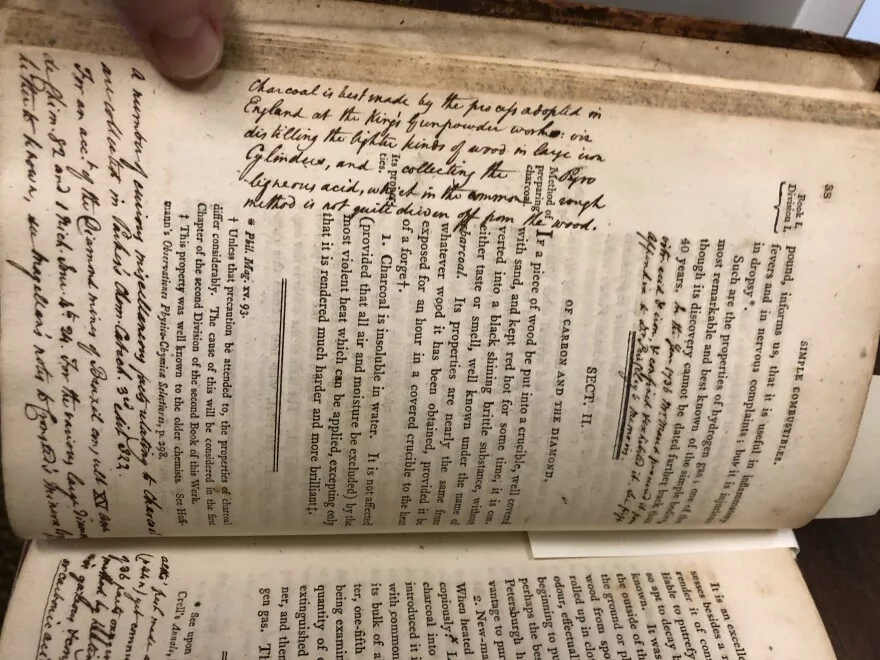 38
SIMPLE COMBUSTIBLES.
Book I.
Division I.
pound, informs us, that it is useful in inflammatory
fevers and in nervous complaints; but it is injurious
in dropsy*.
Such are the properties of hydrogen gas; one of the
most remarkable and best known of the simple bodies,
though its discovery cannot be dated further back than
40 years. In the year
SECT. II.
OF CARBON AND THE DIAMOND.
Method of
preparing
charcoal.
IF a piece of wood be put into a crucible, well covered
with sand, and kept red hot for some time, it is con-
verted into a black shining brittle substance, without
either taste or smell, well known under the name of
charcoal. Its properties are nearly the same from
whatever wood it has been obtained, provided it be
exposed for an hour in a covered crucible to the heat
of a forge†.
Its proper-
ties.
1. Charcoal is insoluble in water. It is not affected
(provided that all air and moisture be excluded) by the
most violent heat which can be applied, excepting only
that it is rendered much harder and more brilliant‡.
Charcoal is best made by the process adopted in
England at the King's Gunpowder works: viz
distilling the lighter kinds of wood in large iron
Cylinders, and collecting the Pyro
ligneous acid, which in the common rough
method is not quite driven off from the wood.
* Phil. Mag. xv. 93.
† Unless that precaution be attended to, the properties of charcoal
differ considerably. The cause of this will be considered in the first
Chapter of the second Division of the second Book of this Work.
‡ This property was well known to the older chemists. See Hoff-
mann's Observationes Physico-Chymicæ Selectiores, p. 298.
a number of curious miscellaneous facts relating to charcoal
are collected in Parkes's Chem. Catech. 3d edit 212.
For an acct. of the Diamond mines of
hitherto known, see Magellan's notes to Cronstedt's Mineralogy
It is an excellent
sesses besides a
render it of com
liable to putrefy
so apt to decay b
known. It was
the outside of th
the ground or pl
wood from spo
rolled up in clo
odour, effectual
beginning to pu
perhaps the bes
Petersburgh h
vantage to pur
2. New-ma
When heated
copiously.
charcoal into
introduced it i
with common
its bulk of a
ter, one-fifth
being examin
quantity of o
extinguished
ner, and then
gen gas. Th
* See upon
Crell's Annals,